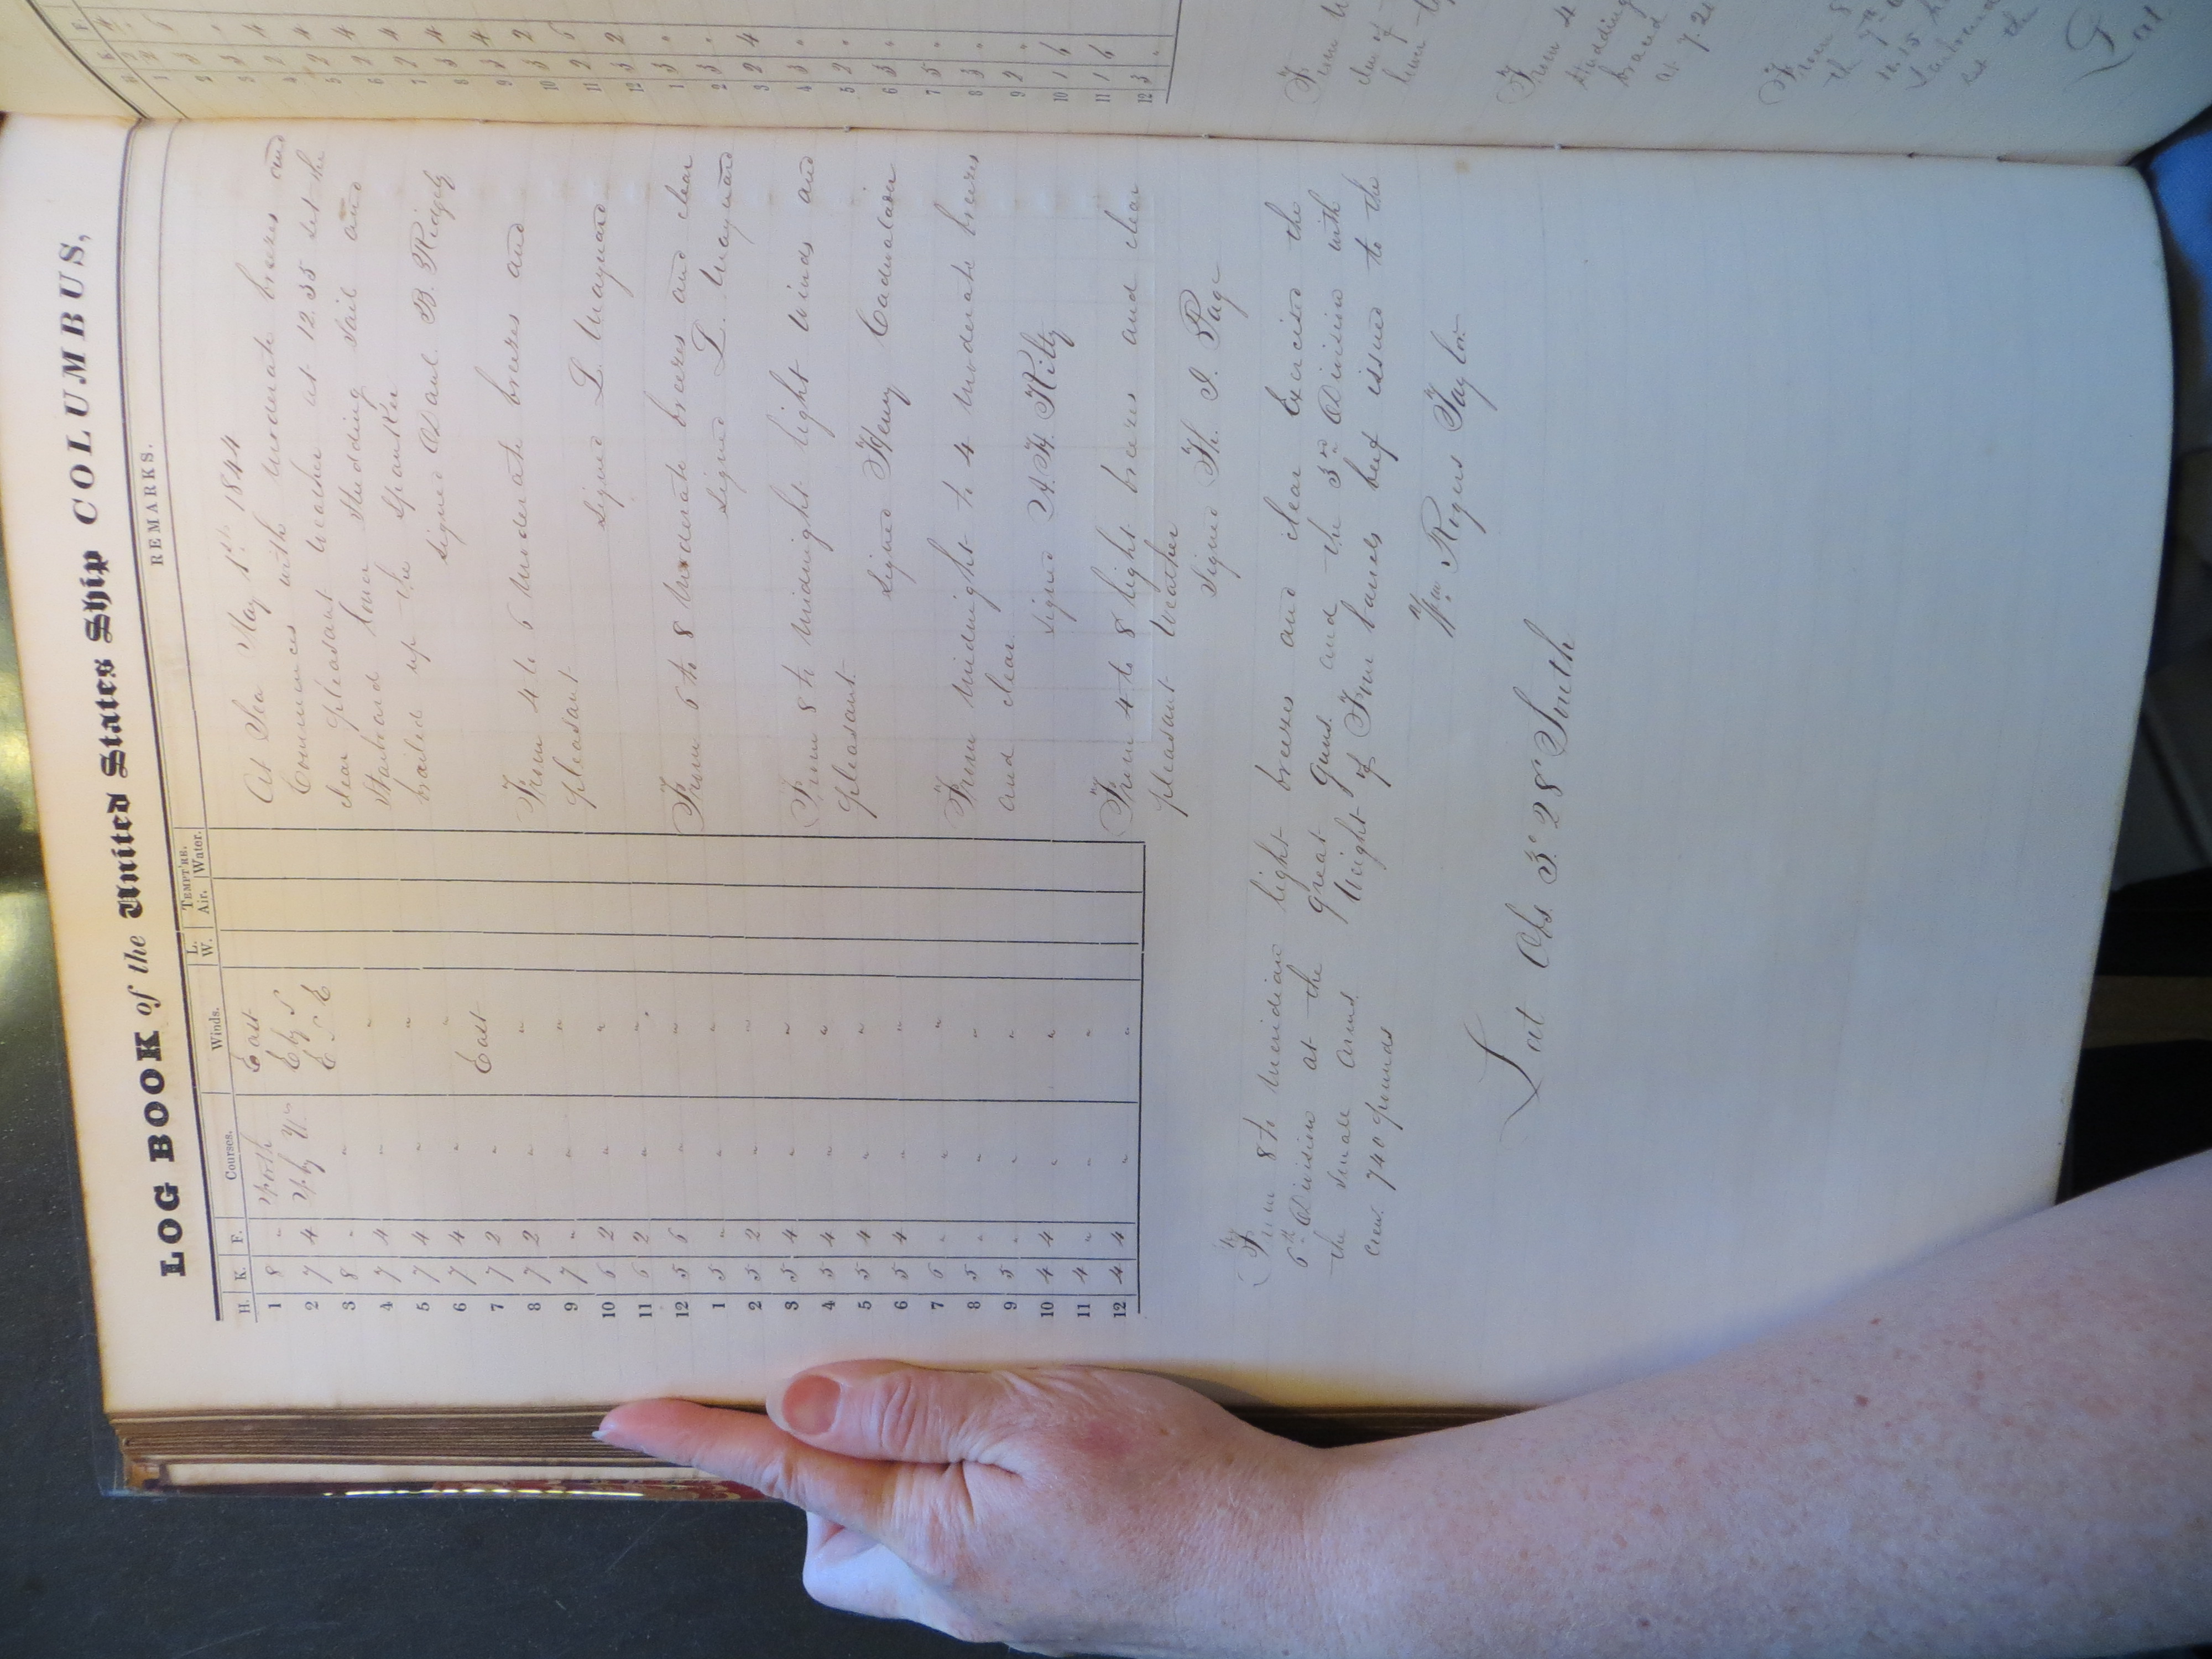 LOG BOOK of the United States Ship COLUMBUS,
H. K. F. Courses. Winds. L. W. TEMPT'RE. Air. Water. REMARKS.
1 8 " North East
2 7 4 N by W E by S
3 8 " " E S E
4 7 4 " "
5 7 4 " "
6 7 4 " "
7 7 2 " East
8 7 2 " "
9 7 " " "
10 6 2 " "
11 6 2 " "
12 5 6 " "
1 5 " " "
2 5 2 " "
3 5 4 " "
4 5 4 " "
5 5 4 " "
6 5 4 " "
7 6 " " "
8 5 " " "
9 5 " " "
10 4 4 " "
11 4 " " "
12 4 4 " "
At Sea May 1st 1844
Commences with moderate breezes and
clear pleasant weather at 12.35 set the
Starboard lower Studding Sail and
brailed up the Spanker
signed Danl. B. Ridgely
From 4 to 6 moderate breezes and
pleasant
signed L. Maynard
From 6 to 8 moderate breezes and clear
signed L. Maynard
From 8 to midnight light winds and
pleasant
signed Henry Cadwalader
From midnight to 4 moderate breezes
and clear
signed A. H. Kilty
From 4 to 8 light breezes and clear
pleasant weather
signed Th. J. Page
From 8 to meridian light breezes and clear Exercised the
6th Division at the great guns and the 3rd Division with
the small arms. Weight of Four barrels beef issued to the
crew. 740 pounds
Wm. Rogers Taylor
Lat Obs 3° 28' South